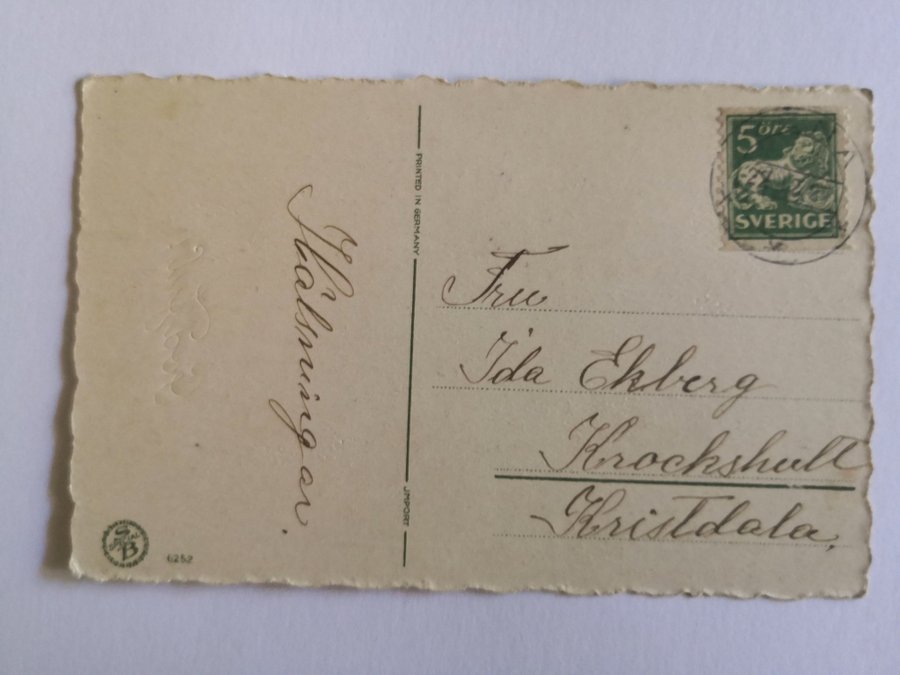 Hälsningar.
PRINTED IN GERMANY
IMPORT
5 ÖRE
SVERIGE
Fru
Ida Ekberg
Krockshult
Kristdala.
SB
6252